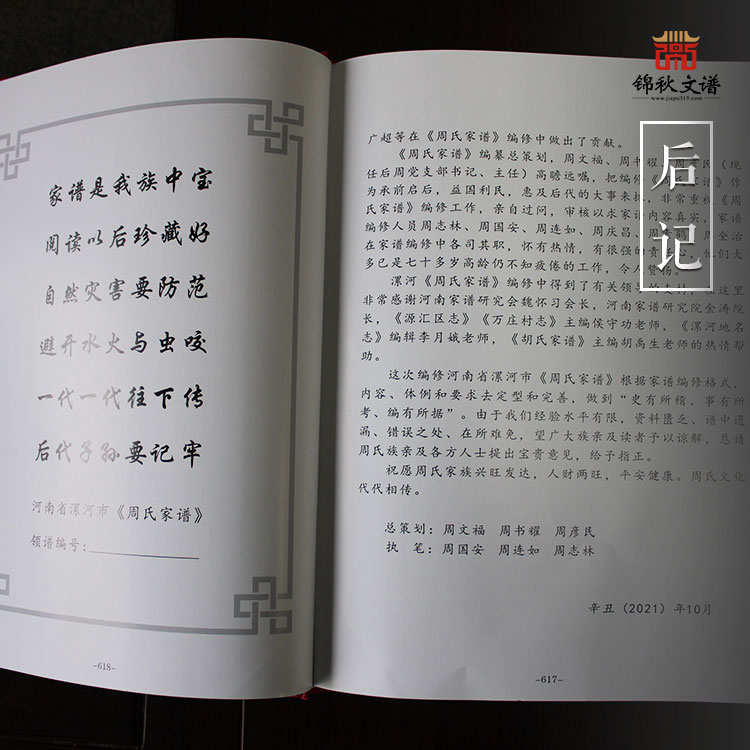 锦秋文谱
www.jiapu315.com
后记
家谱是我族中宝
阅读以后珍藏好
自然灾害要防范
避开水火与虫咬
一代一代往下传
后代子孙要记牢
河南省漯河市《周氏家谱》
领谱编号：
-618-
广超等在《周氏家谱》编修中做出了贡献。
《周氏家谱》编纂总策划，周文福、周书耀、周彦民（现
任后周党支部书记、主任）高瞻远嘱，把编修《周氏家谱》作
为承前启后，益国利民，惠及后代的大事来抓，非常重视《周
氏家谱》编修工作，亲自过问，审核以求家谱内容真实，家谱
编修人员周志林、周国安、周连如、周庆昌、周
在家谱编修中各司其职，怀有热情，有很强的责任心，他们大
多已是七十多岁高龄仍不知疲倦的工作，令人赞扬。
漯河《周氏家谱》编修中得到了有关领导的支持，在这里
非常感谢河南家谱研究会魏怀习会长，河南家谱研究院金涛院
长，《源汇区志》《万庄村志》主编侯守功老师，《漯河地名
志》编辑李月娥老师，《胡氏家谱》主编胡禹生老师的热情帮
助。
这次编修河南省漯河市《周氏家谱》根据家谱编修格式，
内容、体例和要求去定型和完善，做到“史有所稽、事有所
考、编有所据”。由于我们经验水平有限，资料匮乏、谱中遗
漏、错误之处、在所难免，望广大族亲及读者予以谅解，恳请
周氏族亲及各方人士提出宝贵意见，给予指正。
祝愿周氏家族兴旺发达，人财两旺，平安健康。周氏文化
代代相传。
总策划：周文福 周书耀 周彦民
执 笔：周国安 周连如 周志林
辛丑（2021）年10月
-617-